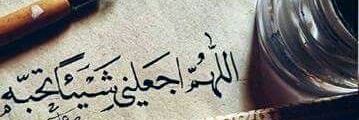 اللّٰهُمَّ اجعلني شَيْئاً تحبّه